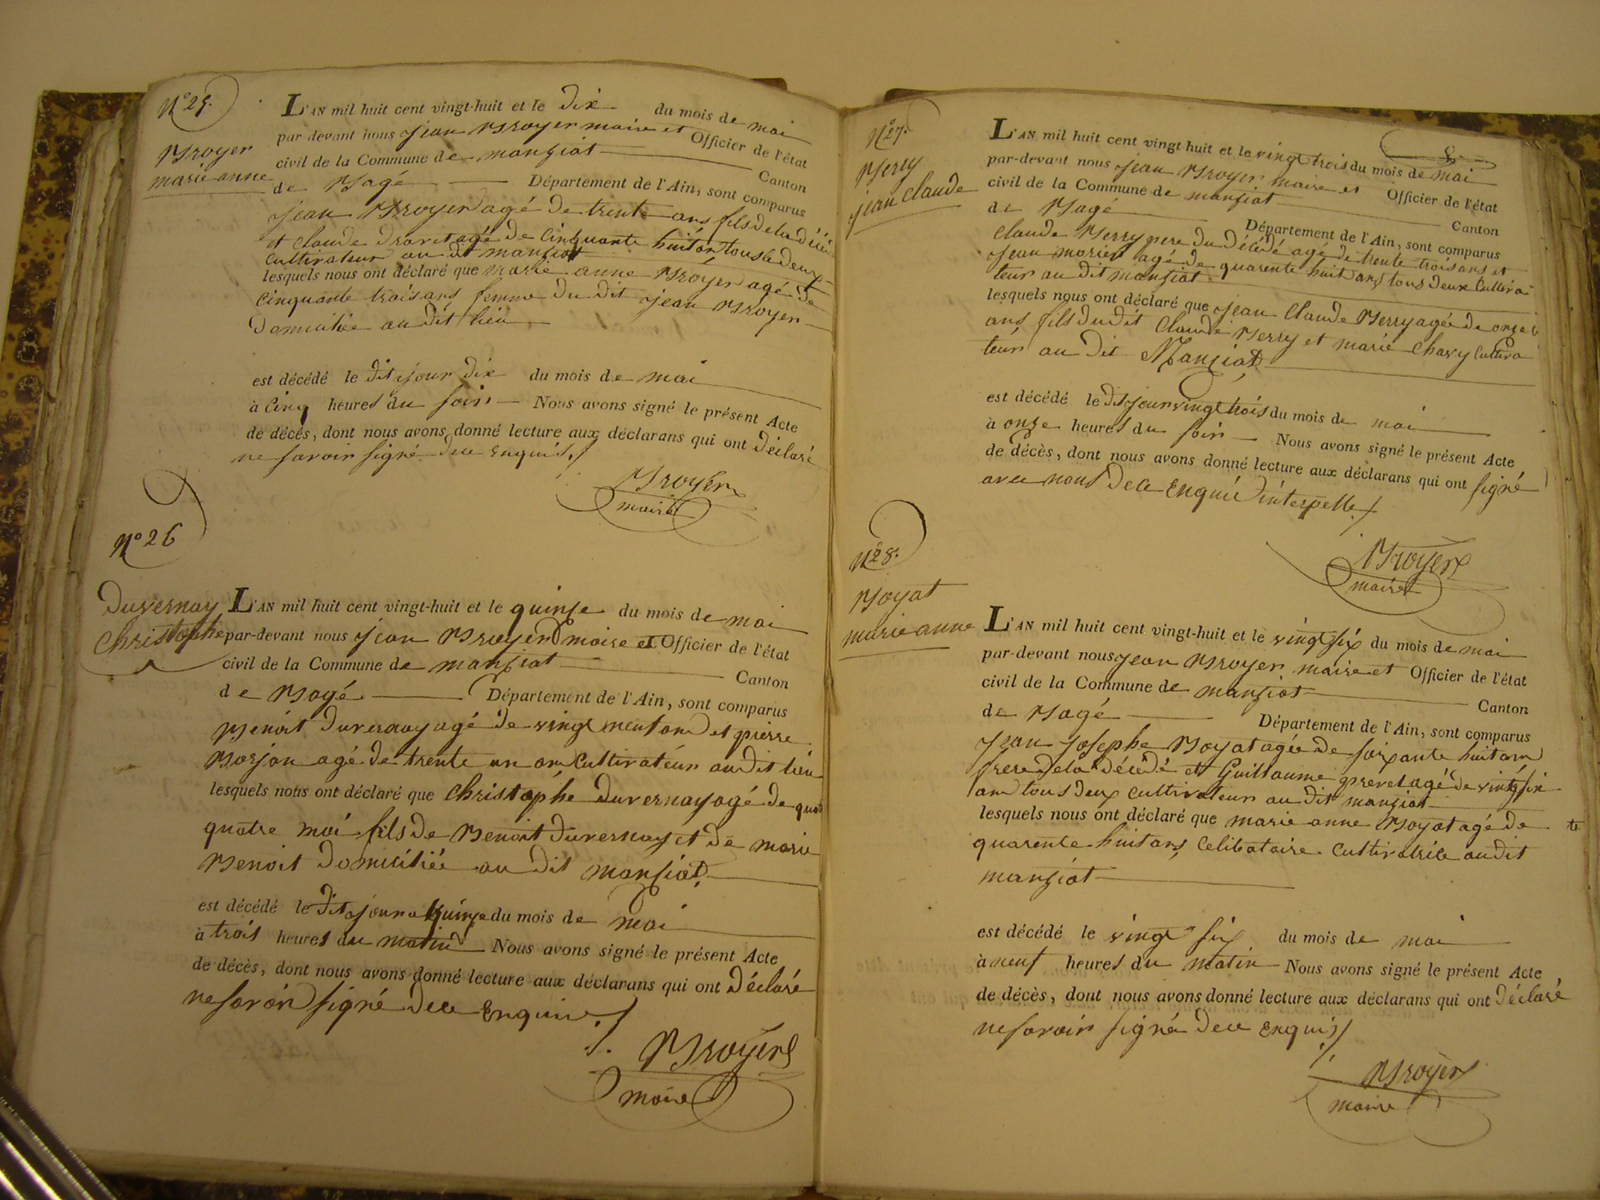 N° 25.
Broyer
marie anne
L'AN mil huit cent vingt-huit et le dix du mois de mai
par-devant nous Jean Broyer maire et Officier de l'état
civil de la Commune de manziat Canton
de Bagé Département de l'Ain, sont comparus
Jean Broyer agé de trente ans fils de la
et Claude agé de Cinquante huit ans tous deux
Cultivateur au dit manziat
lesquels nous ont déclaré que marie anne Broyer agé de
Cinquante trois ans femme du dit Jean Broyer
Domiciliée au dit lieu
est décédé le dit jour dix du mois de mai
à Cinq heures du soir Nous avons signé le présent Acte
de décès, dont nous avons donné lecture aux déclarans qui ont déclaré
ne savoir signé dece Enquis
Broyer
maire
N° 26
Duvernay
Christophe
L'AN mil huit cent vingt-huit et le quinze du mois de mai
par-devant nous Jean Broyer maire et Officier de l'état
civil de la Commune de manziat Canton
de Bagé Département de l'Ain, sont comparus
Benoit Duvernay agé de vingt neuf ans et pierre
agé de trente un an Cultivateur au dit lieu
lesquels nous ont déclaré que Christophe Duvernay agé de
quatre moi fils de Benoit Duvernay et de marie
Benoit Domiciliée au dit manziat
est décédé le dit jour quinze du mois de mai
à trois heures du matin Nous avons signé le présent Acte
de décès, dont nous avons donné lecture aux déclarans qui ont déclaré
ne savoir signé dece Enquis
Broyer
maire
N° 27.
Berry
jean Claude
L'AN mil huit cent vingt-huit et le vingt trois du mois de mai
par-devant nous Jean Broyer maire et Officier de l'état
civil de la Commune de manziat Canton
de Bagé Département de l'Ain, sont comparus
Claude Berry pere du Décédé agé de trente trois ans et
Jean morier agé de quarente huit ans tous deux Cultiva
teur au dit manziat
lesquels nous ont déclaré que Jean Claude Berry agée de onze
ans fils du dit Claude Berry et marie Chavy Cultiva
teur au dit Manziat
est décédé le dit jour vingt trois du mois de mai
à onze heures du soir Nous avons signé le présent Acte
de décès, dont nous avons donné lecture aux déclarans qui ont signé
avec nous Dece Enquis interpelle
Broyer
maire
N° 28.
Boyat
marie anne
L'AN mil huit cent vingt-huit et le vingt six du mois de mai
par-devant nous Jean Broyer maire et Officier de l'état
civil de la Commune de manziat Canton
de Bagé Département de l'Ain, sont comparus
Jean Josephe Boyat agée de soixante huit ans
frere de la décédé et Guillaume prevel agé de vingt six
ans tous deux Cultivateur au dit manziat
lesquels nous ont déclaré que marie anne Boyat agé de
quarente huit ans Celibataire Cultivatrice au dit
manziat
est décédé le vingt six du mois de mai
à neuf heures du matin Nous avons signé le présent Acte
de décès, dont nous avons donné lecture aux déclarans qui ont déclaré
ne savoir signé dece Enquis
Broyer
maire